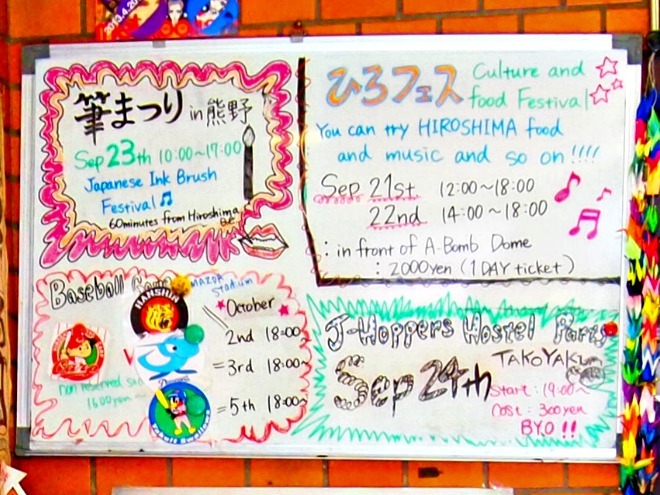 2013.4.20
筆まつり in 熊野
Sep 23th 10:00~17:00
Japanese Ink Brush
Festival♫
60minutes from Hiroshima
ひろフェス Culture and
food Festival
You can try HIROSHIMA food
and music and so on!!!!
Sep 21st 12:00~18:00
22nd 14:00~18:00
: in front of A-Bomb Dome
: 2000yen (1DAY ticket)
Baseball Game
MAZDA
Stadium
October
HANSHIN
2nd 18:00
=3rd 18:00
=5th 18:00
non reserved
1600yen~
Dragons
Swallows
J-Hoppers Hostel Party
TAKOYAKI
Sep 24th
Start: 19:00~
Cost: 300yen
BYO!!